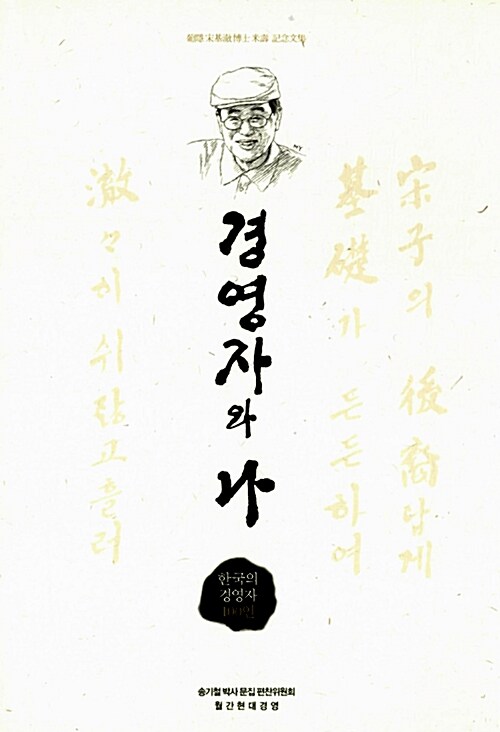 宋基澈博士 米壽 記念文集
경영자와 나
宋子의 後裔답게
基礎가 든든하여
澈々히 쉬랂고 흘러
한국의
경영자
100인
송기철 박사 문집 편찬위원회
월간현대경영